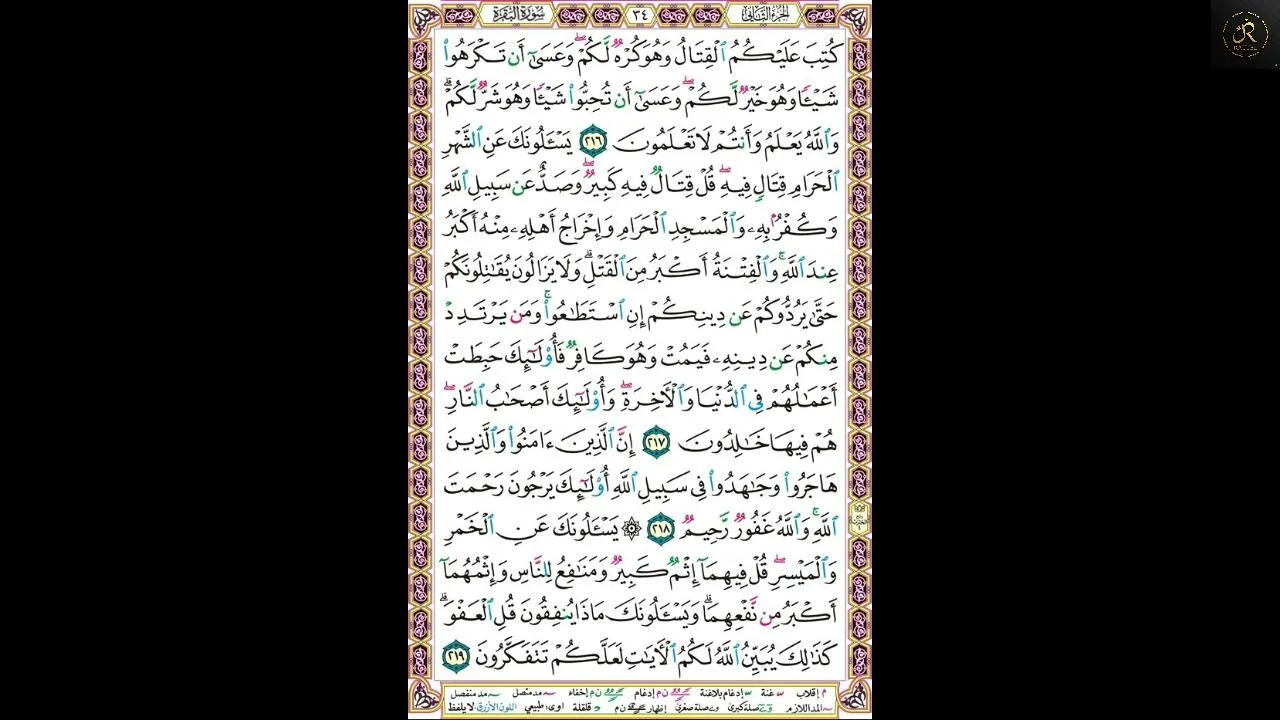 الجزء الثاني ٣٤ سورة البقرة
كُتِبَ عَلَيْكُمُ ٱلْقِتَالُ وَهُوَ كُرْهٌ لَّكُمْ ۖ وَعَسَىٰٓ أَن تَكْرَهُوا۟
شَيْـًٔا وَهُوَ خَيْرٌ لَّكُمْ ۖ وَعَسَىٰٓ أَن تُحِبُّوا۟ شَيْـًٔا وَهُوَ شَرٌّ لَّكُمْ ۗ
وَٱللَّهُ يَعْلَمُ وَأَنتُمْ لَا تَعْلَمُونَ ٢١٦ يَسْـَٔلُونَكَ عَنِ ٱلشَّهْرِ
ٱلْحَرَامِ قِتَالٍ فِيهِ ۖ قُلْ قِتَالٌ فِيهِ كَبِيرٌ ۖ وَصَدٌّ عَن سَبِيلِ ٱللَّهِ
وَكُفْرٌۢ بِهِۦ وَٱلْمَسْجِدِ ٱلْحَرَامِ وَإِخْرَاجُ أَهْلِهِۦ مِنْهُ أَكْبَرُ
عِندَ ٱللَّهِ ۚ وَٱلْفِتْنَةُ أَكْبَرُ مِنَ ٱلْقَتْلِ ۗ وَلَا يَزَالُونَ يُقَـٰتِلُونَكُمْ
حَتَّىٰ يَرُدُّوكُمْ عَن دِينِكُمْ إِنِ ٱسْتَطَـٰعُوا۟ ۚ وَمَن يَرْتَدِدْ
مِنكُمْ عَن دِينِهِۦ فَيَمُتْ وَهُوَ كَافِرٌ فَأُو۟لَـٰٓئِكَ حَبِطَتْ
أَعْمَـٰلُهُمْ فِى ٱلدُّنْيَا وَٱلْـَٔاخِرَةِ ۖ وَأُو۟لَـٰٓئِكَ أَصْحَـٰبُ ٱلنَّارِ ۖ
هُمْ فِيهَا خَـٰلِدُونَ ٢١٧ إِنَّ ٱلَّذِينَ ءَامَنُوا۟ وَٱلَّذِينَ
هَاجَرُوا۟ وَجَـٰهَدُوا۟ فِى سَبِيلِ ٱللَّهِ أُو۟لَـٰٓئِكَ يَرْجُونَ رَحْمَتَ
ٱللَّهِ ۚ وَٱللَّهُ غَفُورٌ رَّحِيمٌ ٢١٨ ۞ يَسْـَٔلُونَكَ عَنِ ٱلْخَمْرِ
وَٱلْمَيْسِرِ ۖ قُلْ فِيهِمَآ إِثْمٌ كَبِيرٌ وَمَنَـٰفِعُ لِلنَّاسِ وَإِثْمُهُمَآ
أَكْبَرُ مِن نَّفْعِهِمَا ۗ وَيَسْـَٔلُونَكَ مَاذَا يُنفِقُونَ قُلِ ٱلْعَفْوَ ۗ
كَذَٰلِكَ يُبَيِّنُ ٱللَّهُ لَكُمُ ٱلْـَٔايَـٰتِ لَعَلَّكُمْ تَتَفَكَّرُونَ ٢١٩
م إقلاب غنة إدغام بلاغنة ن م إدغام ن م إخفاء مد متصل مد منفصل
المد اللازم صلة كبرى صلة صغرى إظهار ن م قلقلة اوى: طبيعي اللون الأزرق: لا يلفظ